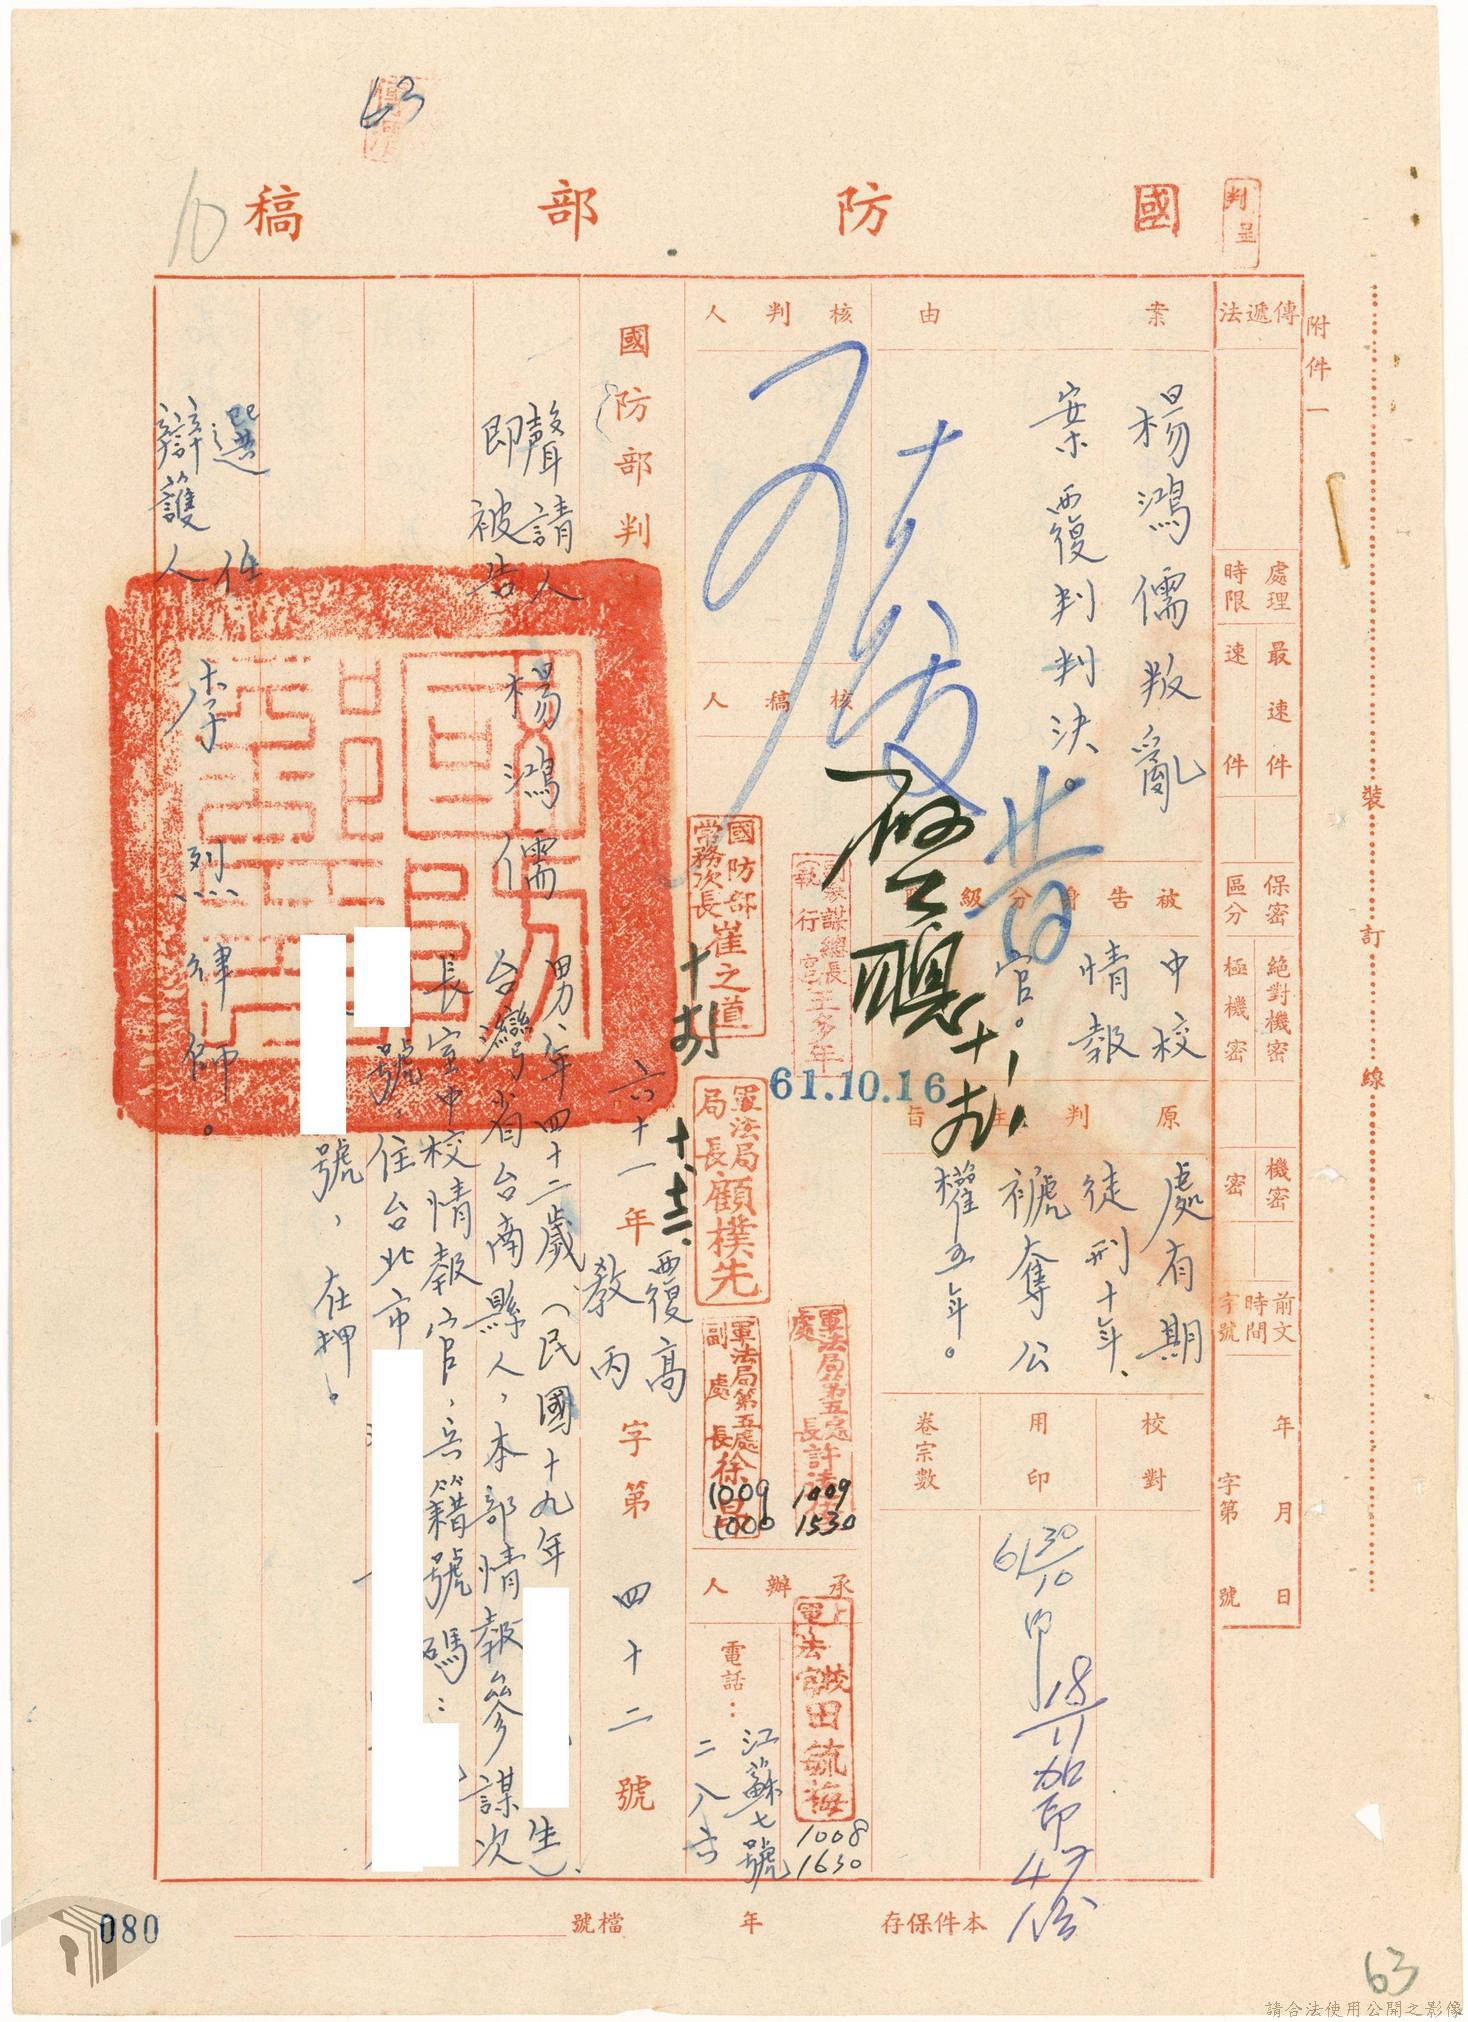 63
國防部稿
判呈
10
附件一
裝訂線
傳遞法
處理時限
最速件
速件
保密區分
絕對機密
極機密
機密
密
前文時間字號
年月日
字第號
案由
楊鴻儒叛亂
案覆判判決。
被告身分級職
中校
情報
官。
原判主旨
處有期
徒刑十年、
褫奪公
權五年。
校對
用印
卷宗數
61 30/10 印
18/11 加印47份
核判人
核稿人
副參謀總長執行官王多年
61.10.16
國防部常務次長崔之道
軍法局局長顧樸先
軍法局第五處處長許
1009
1530
軍法局第五處副處長徐
1009
1000
承辦人
上校軍法官田毓梅
1008
1630
電話：
江蘇七號
二八六
國防部判
六十一年覆高
教丙字第四十二號
聲請人
即被告
楊鴻儒
男、年四十二歲(民國十九年
生)、
台灣省台南縣人，本部情報參謀次
長室中校情報官，兵籍號碼：
號。住台北市
號，在押。
選任
辯護人
李烈律師。
本件保存年
檔號
080
63
請合法使用公開之影像